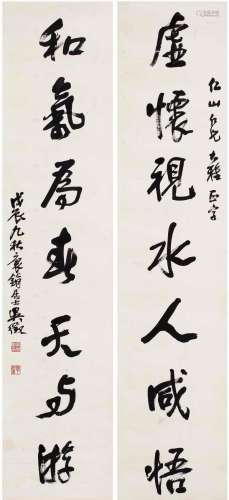 仁山先生大雅正字
虛懷視水人咸悟
和氣為春天與游
戊辰九秋袁鋪居士吳徵